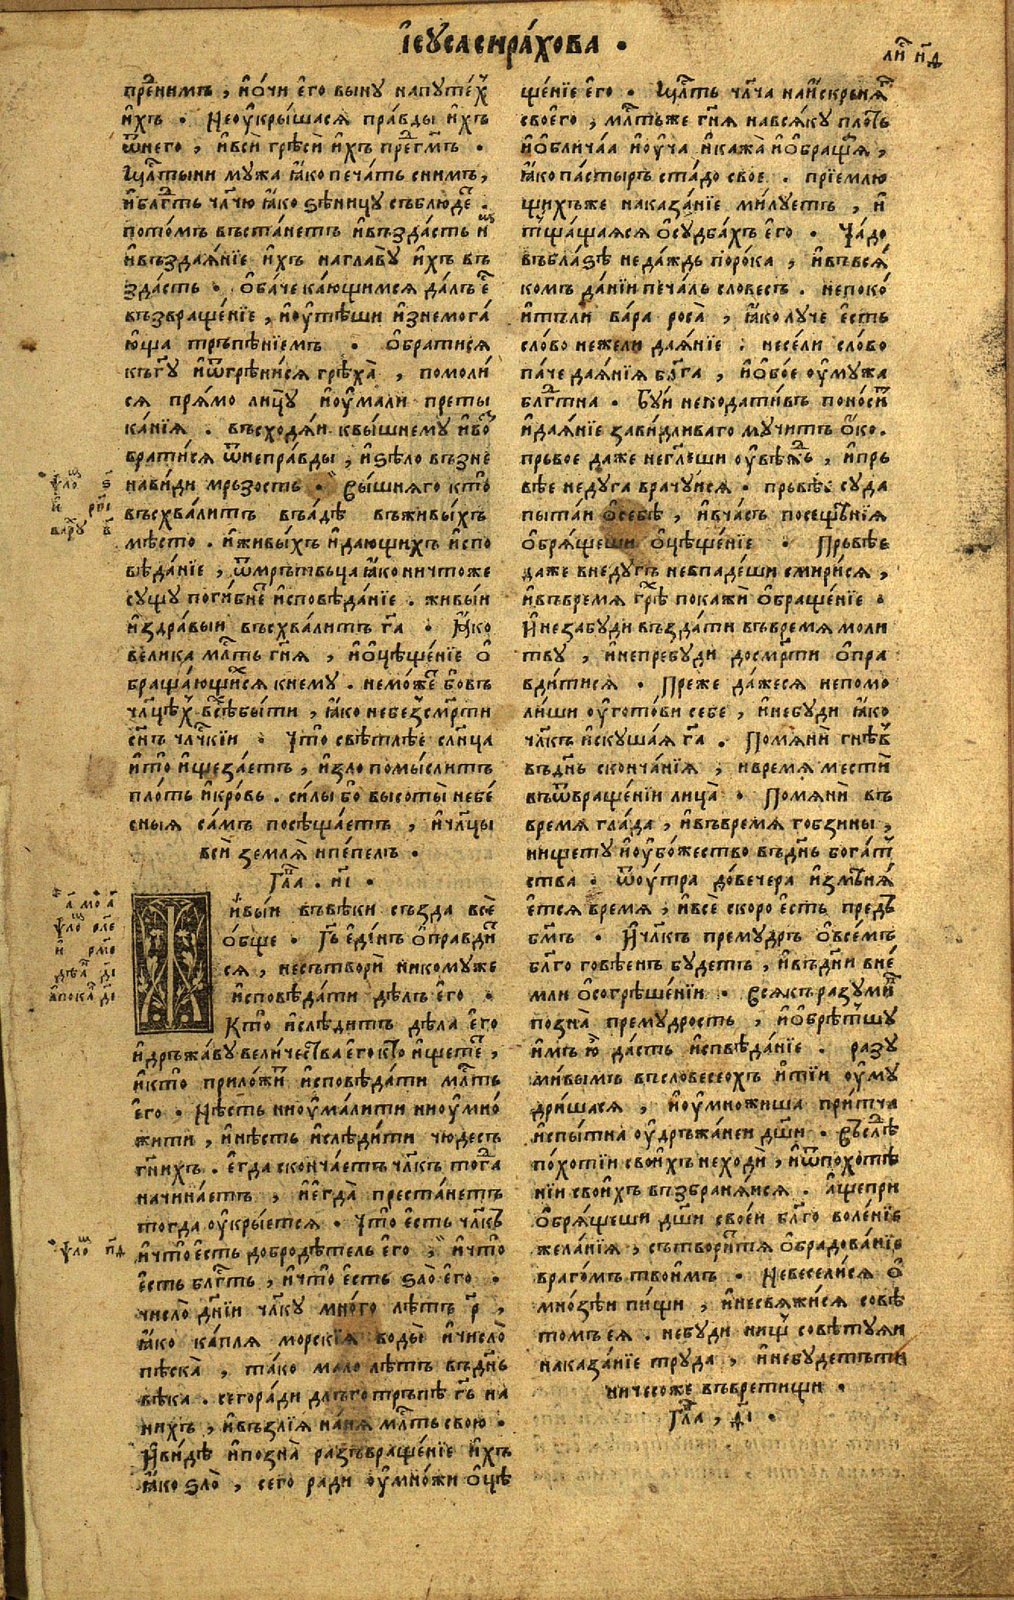 І҆сꙋса сира́хова .
ли҇ н҃д
пре́нимъ , и҆о́чи є҆го выну напꙋте́х
и҆хъ . Неоу҆кры́шася пра́вды и҆хъ
ѿнего , и҆вси̑ грѣси̑ и҆хъ пред̾гм҃ъ .
Щл҃тыни мꙋжа ꙗ҆ко печа́ть сни́мъ ,
и҆бл҃гть чл҃чю ꙗ҆ко ѕѣницꙋ съблюде .
пото́мъ въста́нетъ и҆възда́сть и҆м
и҆възда́нїе и҆хъ наглавꙋ̀ и҆хъ въ
зда́сть . О҆ба́че ка́ющимся да́лъ є҆
възвраще́нїе , и҆оу҆тѣ́ши и҆знемога́
ю҆ща трꙏпѣ́нїемъ . О҆брати́ся
къгꙋ҃ и҆ѿгрѣни́ся грѣха̀ , помоли́
ся пря́мо лицꙋ̀ и҆оу҆мали̑ преты
ка́нїѧ . въсходѧ́и квы́шнемꙋ и҆ѿ
брати́ся ѿнепра́вды , и҆ѕѣло възне
нави́ди мръзость . Вы́шняго кто̀
въсхва́литъ въа́дѣ въживы́хъ
мѣсто . и҆живы́хъ и҆даю́щихъ и҆спо
вѣ́данїе , ѿмръ́твьца ꙗ҆ко ничтоже
сꙋщꙋ поги́бне и҆сповѣ́данїе . живы́и
и҆здра́выи въсхва́литъ гд҃а . Ꙗ҆ко
вели́ка мл҃ть гн҃я , и҆о҆цѣще́нїе о҆
браща́ющимся кнемꙋ . немо́же бо́въ
чл҃цѣ́х всѐбы́ти , ꙗ҆ко небезсмр҃ти
сн҃ъ чл҃чкїи . Что̀ свѣтлѣ́е сл҃нца
и҆то̀ и҆щеза́етъ , и҆зло̀ помы́слитъ
пло́ть и҆кро́вь . си́лы бо̀ высоты̀ небе́
сныя са́мъ посѣща́етъ , и҆чл҃цы
вси̑ земля̀ и҆пе́пелъ .
Гла҃ . и҃і .
Живы́и въвѣ́ки създа все̑
о҆бще . Гд҃ь є҆ди́нъ о҆правди
ся , несътвори̑ никомꙋже
и҆сповѣ́дати дѣ́лъ є҆го .
Кто̀ и҆слѣ́дитъ дѣ́ла є҆го
и҆дръжа́вꙋ вели́чества є҆го кто̀ и҆ще́те ,
и҆кто̀ приложи҆ и҆сповѣ́дати мл҃ть
є҆го . Нѣ́сть ниоу҆ма́лити ниоу҆мно́
жити , и҆нѣ́сть и҆слѣ́дити чюде́съ
гн҃ихъ . є҆гда сконча́етъ чл҃къ тогда
начина́етъ , и҆є҆гда̀ преста́нетъ
тогда оу҆кры́ется . Что̀ є҆сть чл҃къ
и҆что̀ є҆сть добродѣ́тель є҆го , и҆что̀
є҆сть бл҃гть , и҆что̀ є҆сть ѕло̀ є҆го .
число̀ дн҃їи чл҃кꙋ мно́го лѣ́тъ р҃ ,
ꙗ҆ко ка́пля морскі́я воды̀ и҆число̀
пѣска̀ , та́ко мало лѣ́тъ въдн҃ь
вѣ́ка . сегоради длъготръпѣ гд҃ь на
ни́хъ , и҆възлі́я на́ня мл҃ть свою .
И҆ви́дѣ и҆позна̀ развраще́нїе и҆хъ
ꙗ҆ко ѕло̀ , сего ради оу҆мно́жи о҆цѣ
ще́нїе є҆го . Щл҃ть чл҃ча наи́скрьняѧ
своего , мл҃тьже гн҃я нався́кꙋ пло́ть
и҆о҆блича́я и҆оу҆ча и҆кажа̀ и҆о҆браща́я ,
ꙗ҆ко па́стырь ста́до свое . прїемлю
щихъже наказа́нїе ми́лꙋетъ , и҆
тща́щаяся о҆сꙋдба́хъ є҆го . Ча́до
въбла́зѣ неда́ждь поро́ка , и҆въвся
комъ да́нїи печа́ль слове́съ . непоко́
и҆тъли ва́ра роса̀ , ꙗ҆ко лꙋче є҆сть
сло́во нежели дая́нїе : несели сло́во
па́че дая́нїя бл҃га , и҆о҆бо́е оу҆мꙋжа
бл҃гтна . Бꙋ́и неподати́въ поно́си
и҆дая́нїе зави́дливаго мꙋчитъ о҆ко .
прьвое даже негл҃еши оу҆вѣ́жь , и҆прь
вѣе недꙋга врачꙋ́ися . прьвѣ́е сꙋда
пытаи о҆себѣ , и҆вча́съ посеще́нїя
о҆бря́щеши о҆цѣще́нїе . Прьвѣе
даже внедꙋ́гъ невпаде́ши смири́ся ,
и҆въвремя грѣ покажи̑ о҆браще́нїе .
И҆незабꙋди въздати въвремя моли
твꙋ , и҆непребꙋди досмр҃ти о҆пра
вди́тися . Преже да́жеся непомо
ли́ши оу҆гото́ви себе , и҆небꙋди ꙗ҆ко
чл҃къ и҆скꙋша́я гд҃а . Помяни̑ гнѣв
въдн҃ь сконча́нїя , и҆время мести̑
въѿвраще́нїи лица̀ . Помяни̑ въ
время гла́да , и҆въвремя гобзины ,
нищетꙋ и҆оу҆бо́жество въдн҃ь бога́т
ства . ѿоу́тра до́вечера и҆змѣня
є҆тся время , и҆все̑ скоро є҆сть предъ
бг҃мъ . И҆чл҃къ премꙋдръ о҆всемъ
бл҃го говѣенъ бꙋ́детъ , и҆въдн҃и вне
мли о҆согрѣше́нїи . Всякъ разꙋми
позна̀ премꙋдрость , и҆о҆брѣ́тшꙋ
и҆мъ ю҆̀ да́сть и҆спвѣ́данїе . разꙋ
ми́вымъ въсловесеохъ и҆тїи оу҆мꙋ
дри́шася , и҆оу҆множиша при́тча
и҆спы́тна оу҆дръжа́неи дш҃и . Въслѣ
по́хотїи свои́хъ неходи , и҆ѿпохотѣ
нїи свои́хъ възбраня́ися . а҆щепри
о҆бря́щеши дш҃и свое́и бл҃го воле́нїе
жела́нїя , сътвори́тъ о҆бра́дованїе
враго́мъ твои́мъ . Невесели́ся о҆
мно́зѣи пи́щи , и҆несвяжи́ся совѣ
томъ ея . небꙋди нищ совѣ́тꙋяи
наказа́нїе трꙋда , и҆небꙋдетъти
ничесоже въвретищи .
Гла҃ , ѳ҃і .